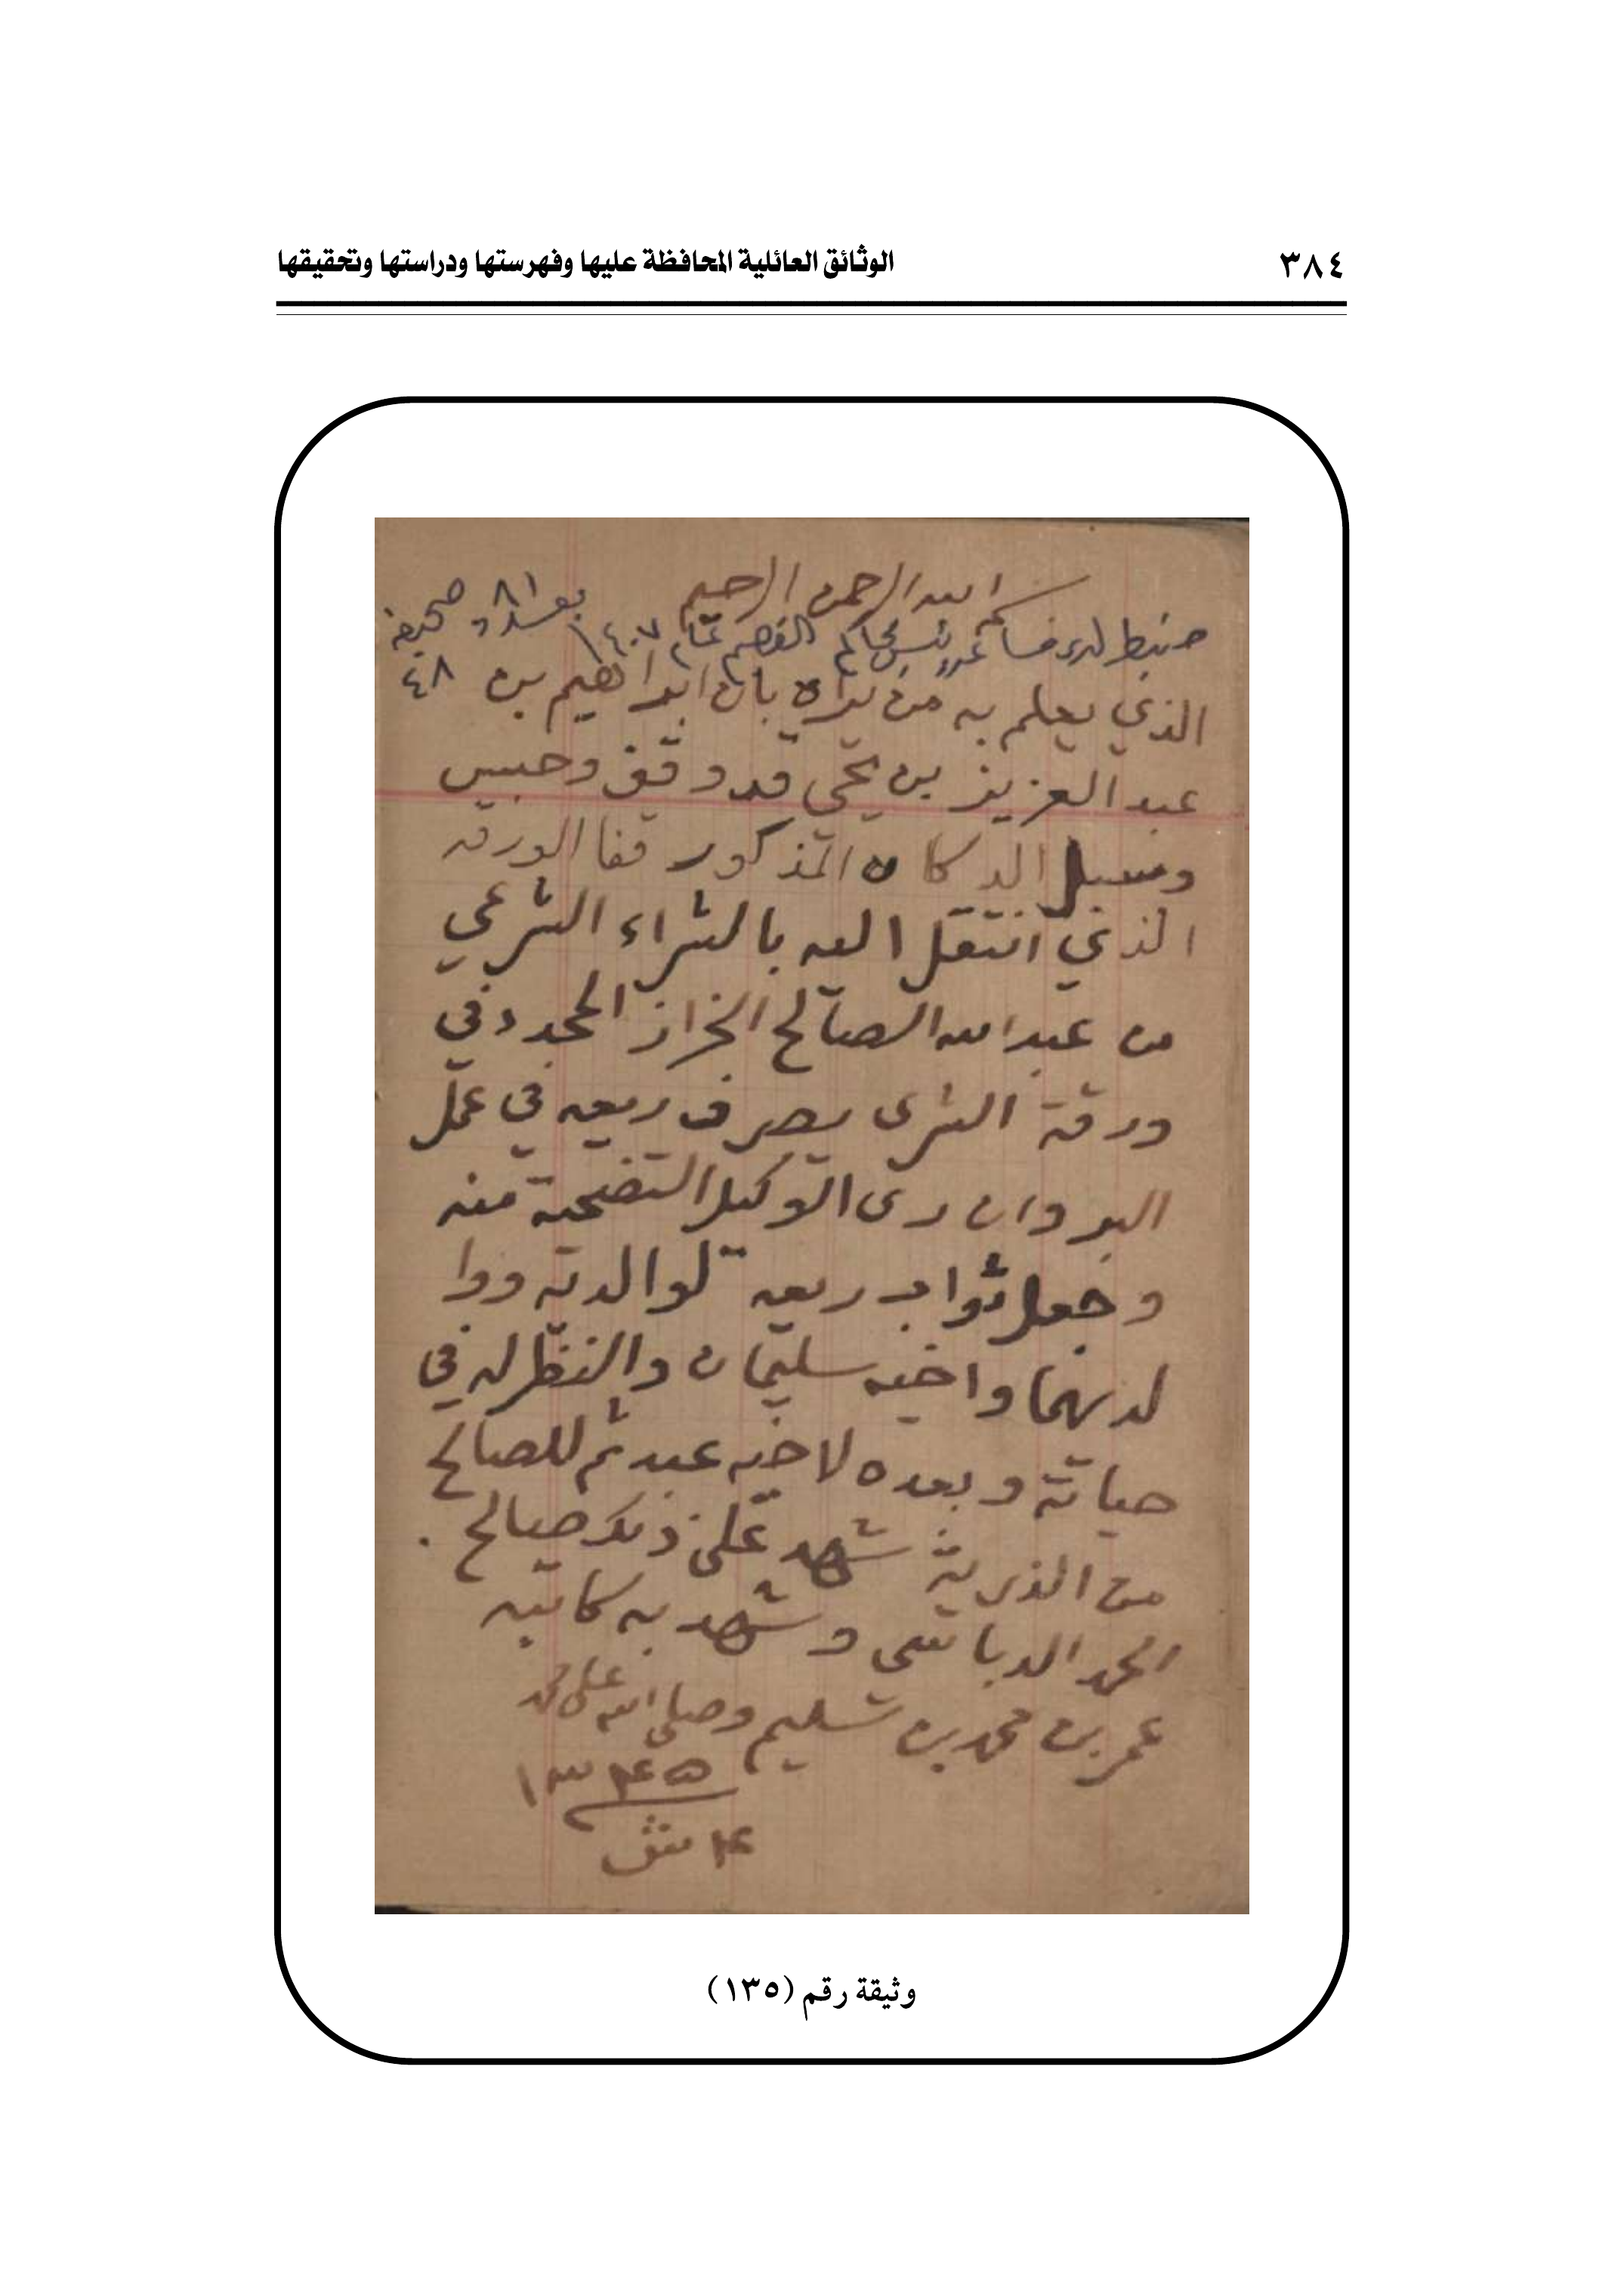 ٣٨٤
الوثائق العائلية المحافظة عليها وفهرستها ودراستها وتحقيقها
بسم الله الرحمن الرحيم
ضبط لدى رئيس محاكم القصيم عام ١٤٠٧ بعدد ٨١ صحيفة
٤٨
الذي يعلم به من يراه بان ابراهيم بن
عبد العزيز بن يحي قد وقف وحبس
وسبل الدكان المذكور قفا الورقه
الذي انتقل اليه بالشراء الشرعي
من عبد الله الصالح الخراز المحدد في
ورقة الشرى يصرف ريعه في عمل
البر وان رى الوكيل التضحية منه
وجعل ثواب ريعه لوالديه ووا
لديهما واخيه سليمان والنظر له في
حياته وبعده لاخيه عبد ثم للصالح
من الذرية شهد على ذلك صالح
الحمد الدباسي وشهد به كاتبه
عمر بن محمد بن سليم وصلى الله على محمد
١٣٤٥
١٤ ش
وثيقة رقم (١٣٥)